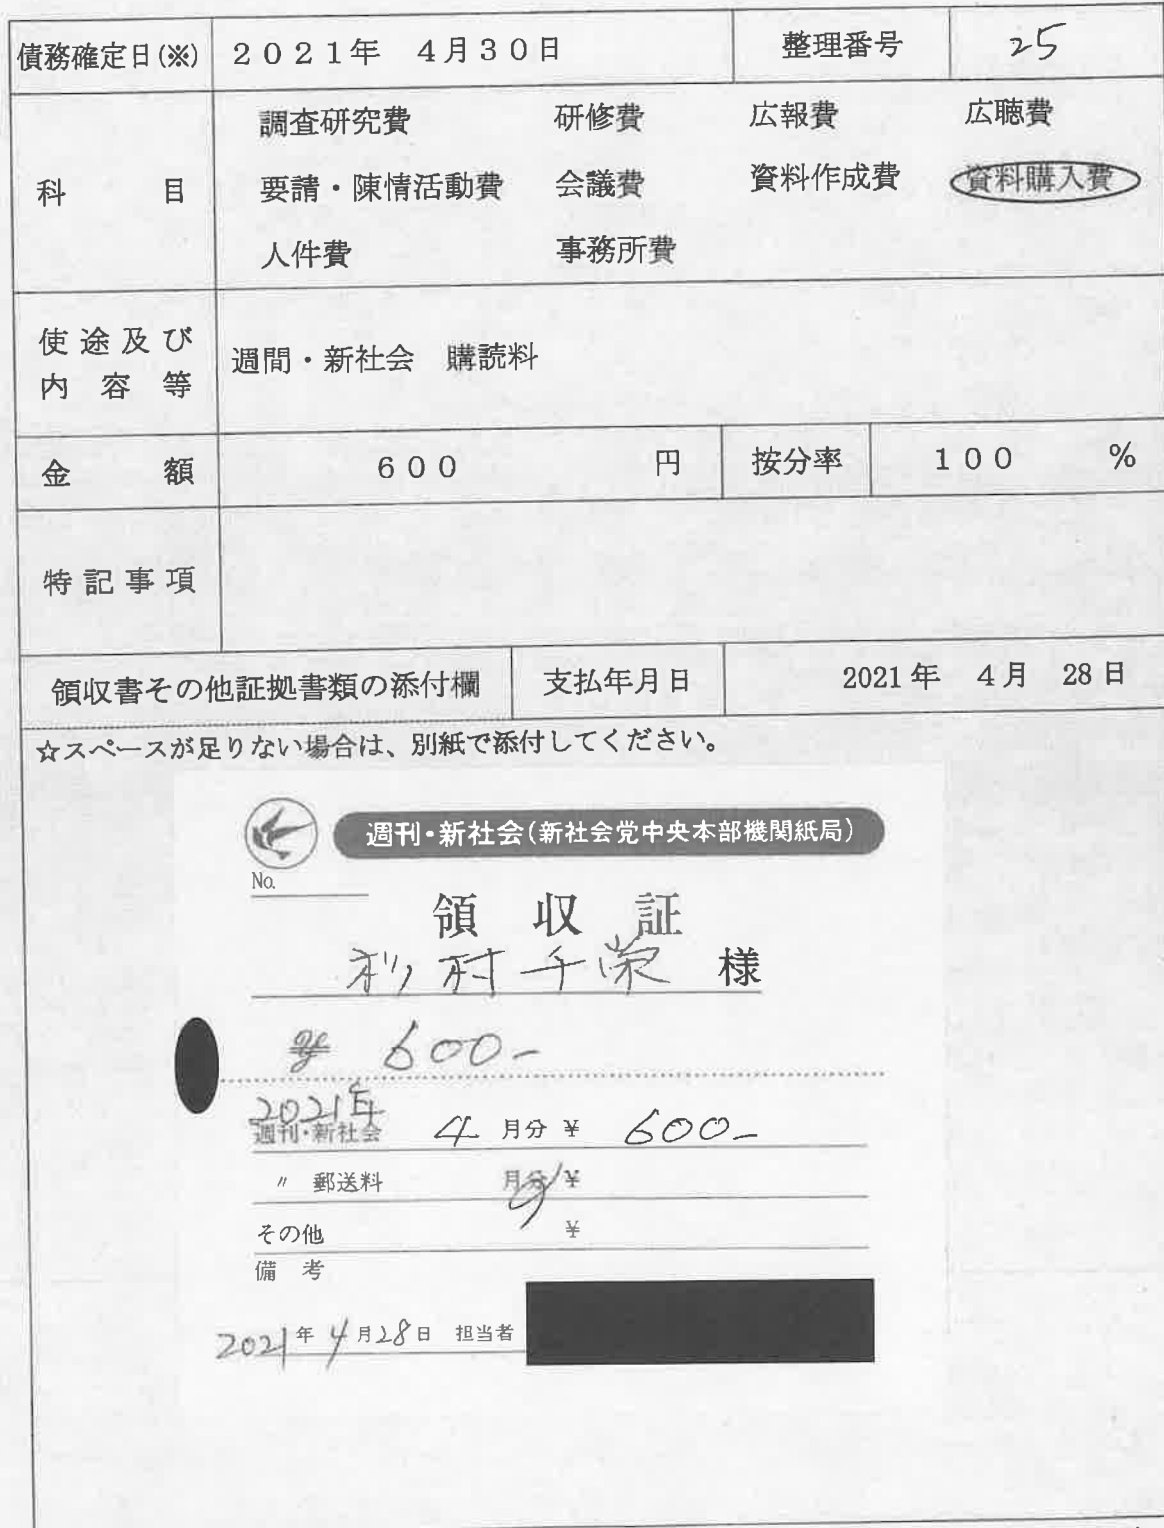 債務確定日(※) ２０２１年 ４月３０日 整理番号 25
科 目
調査研究費 研修費 広報費 広聴費
要請・陳情活動費 会議費 資料作成費 資料購入費
人件費 事務所費
使途及び
内容等
週間・新社会 購読料
金 額 ６００ 円 按分率 １００ %
特記事項
領収書その他証拠書類の添付欄 支払年月日 2021年 4月 28日
☆スペースが足りない場合は、別紙で添付してください。
週刊・新社会(新社会党中央本部機関紙局)
No.
領収証
杉村千栄 様
¥ 600-
2021年
週刊・新社会 4 月分 ¥ 600-
〃 郵送料 月分 ¥
その他 ¥
備考
2021年 4月28日 担当者